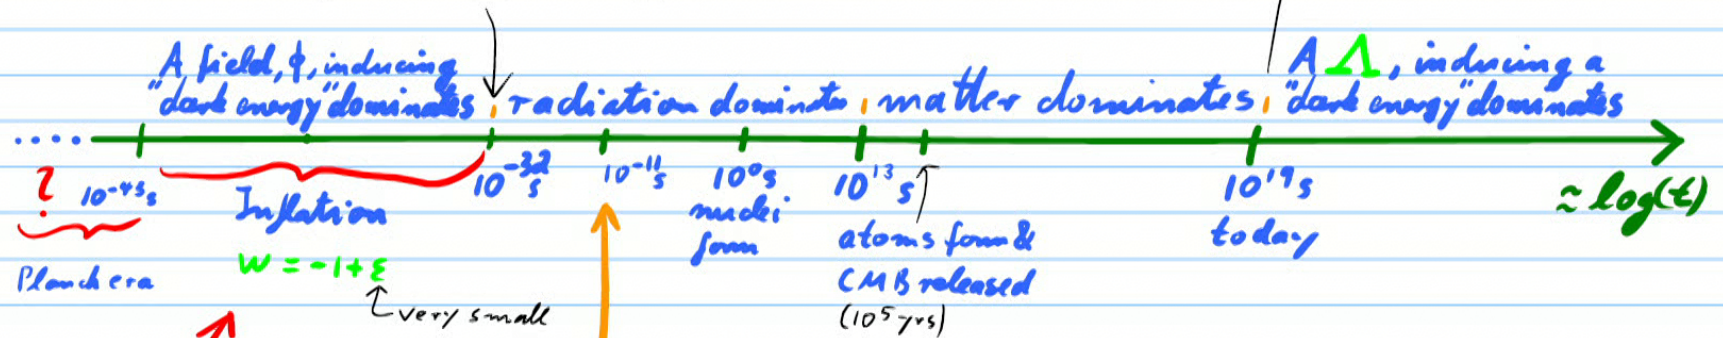 A field, ϕ, inducing
"dark energy" dominates
radiation dominates
matter dominates
A Λ, inducing a
"dark energy" dominates
....
?
10⁻⁴³s
10⁻³²s
10⁻¹¹s
10⁰s
10¹³s
10¹⁹s
≈ log(t)
Planck era
Inflation
w = -1+ε
very small
nuclei
form
atoms form &
CMB released
(10⁵ yrs)
today